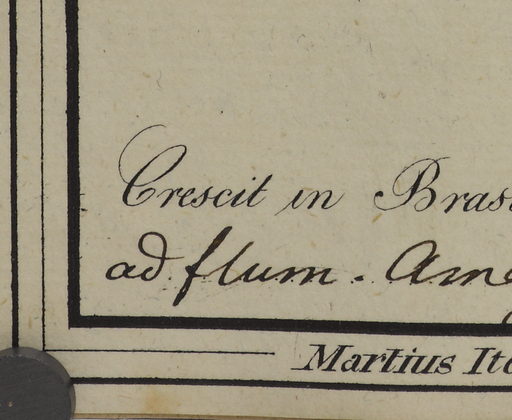 Crescit in Bras
ad flum. Ame
Martius Ite